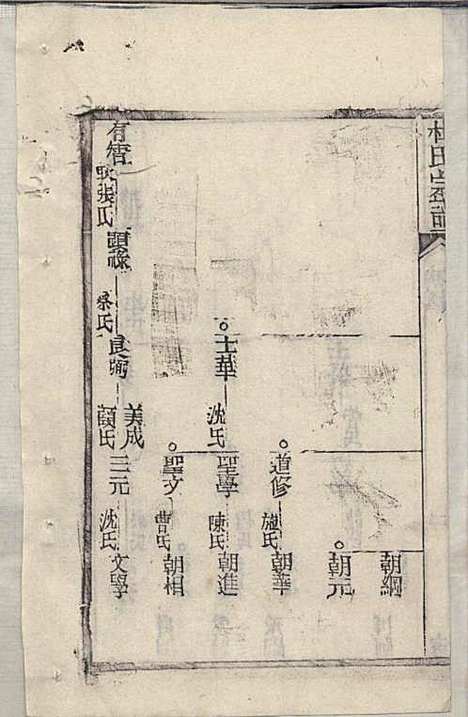 氏宗譜
朝綱
朝元
道修 施氏 朝華
士華 沈氏 聖學 陳氏 朝進
聖文 曹氏 朝相
美成
有智 張氏 顯祿 蔡氏 良弼 顧氏 三元 沈氏 文學